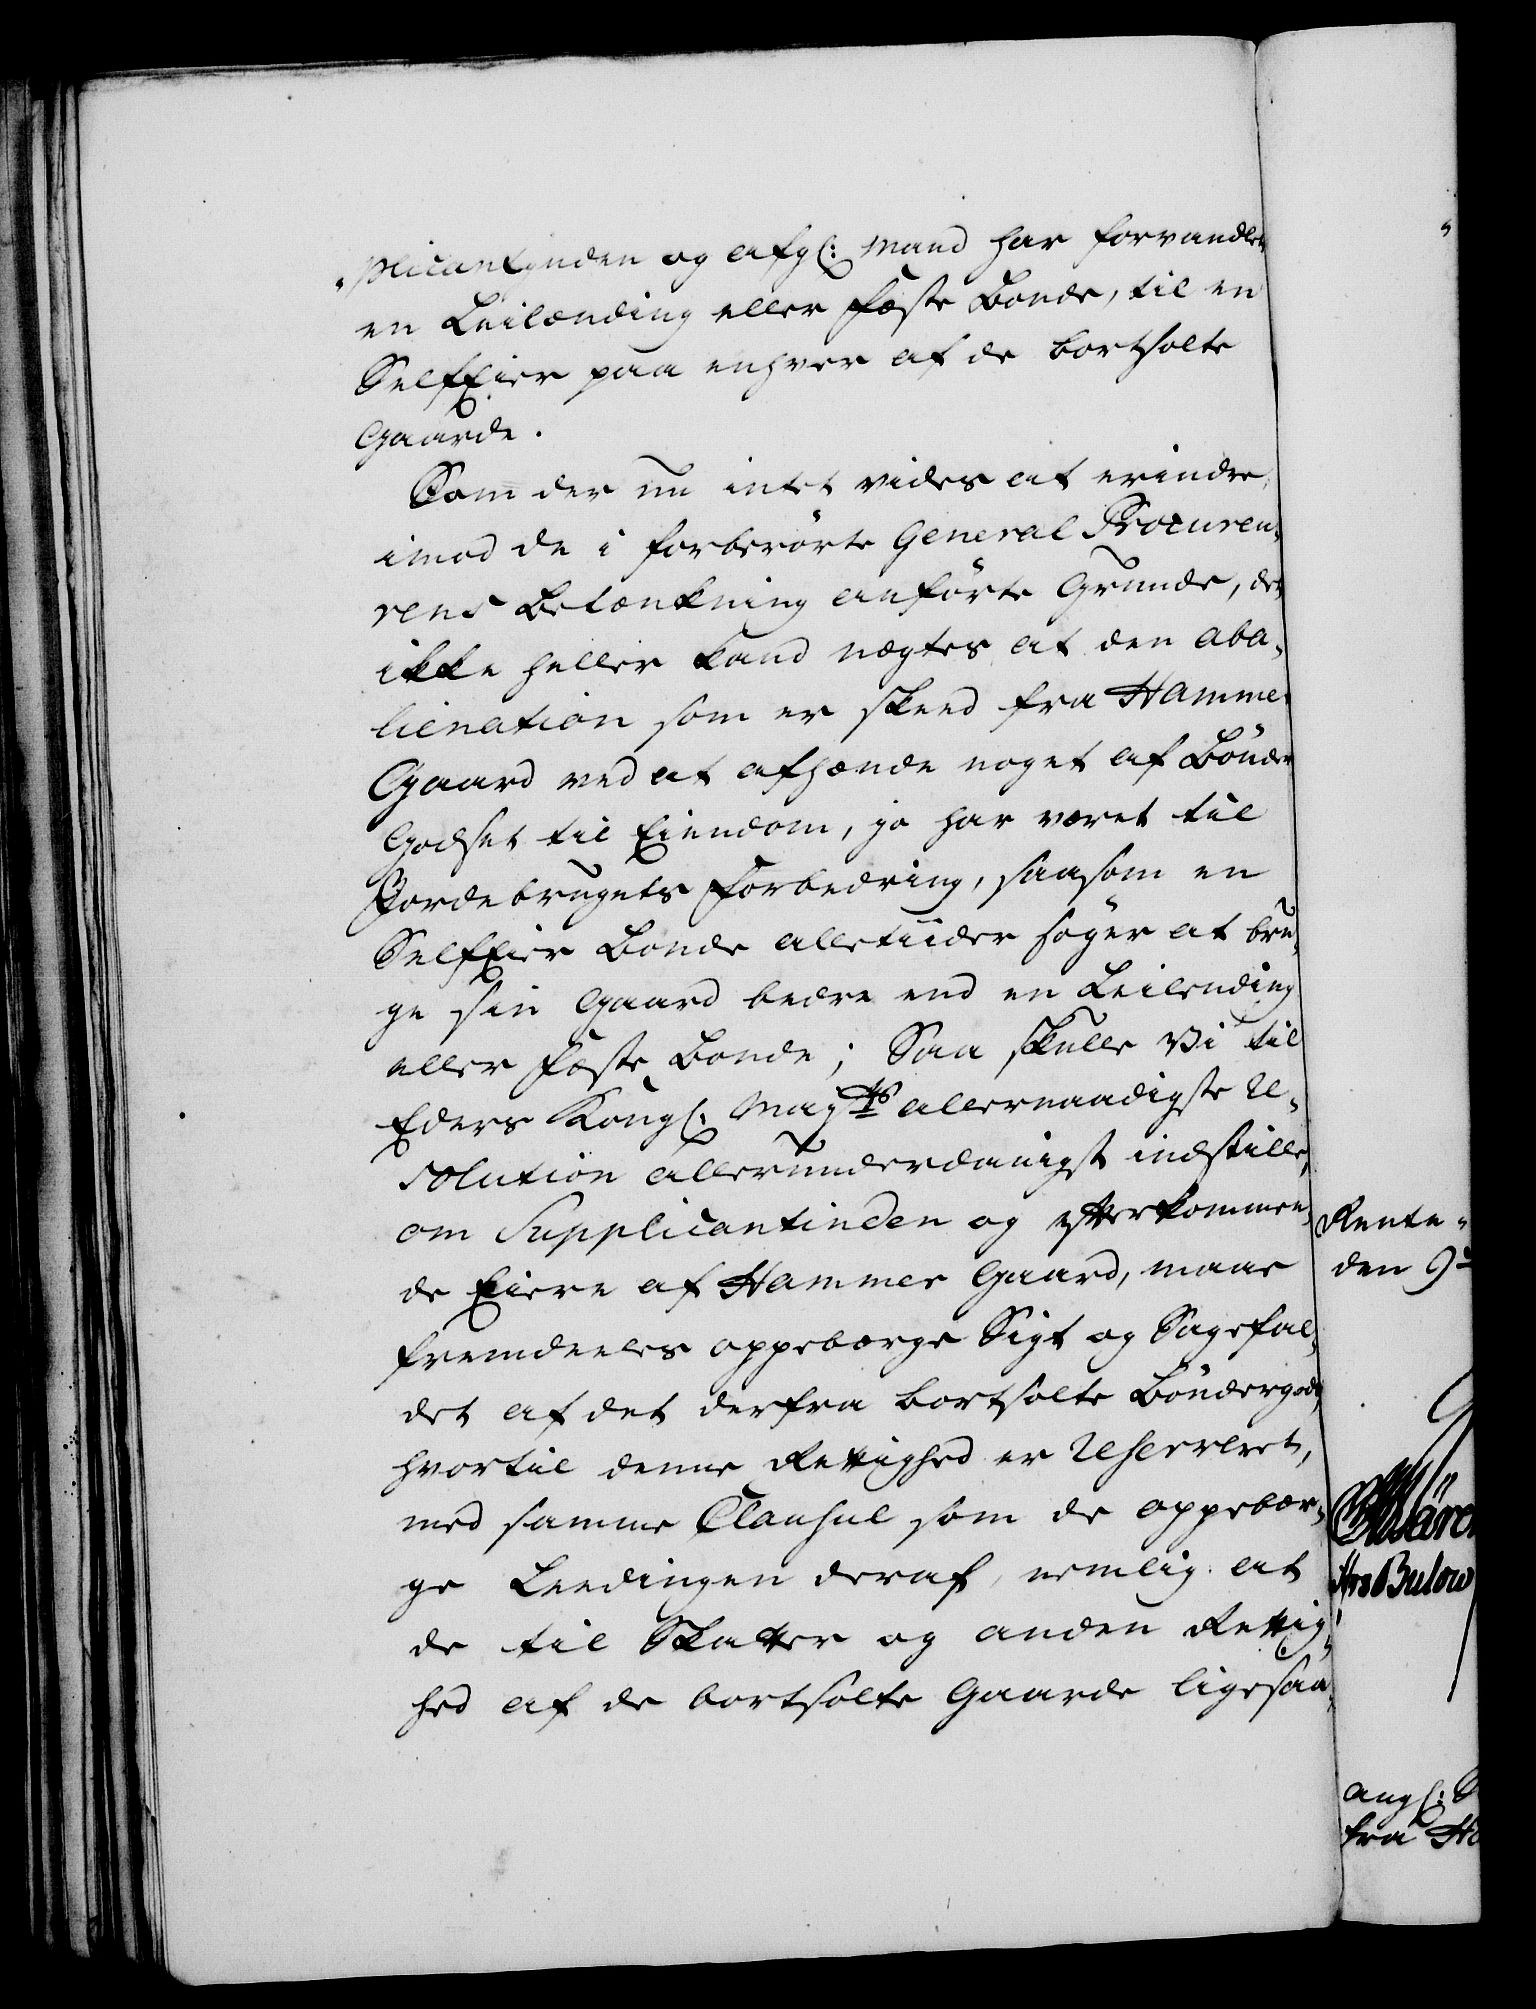 „plicantinden og afg(: Mand har forvandlet
en Leilænding eller Fæste Bonde, til en
SelfEier paa enhver af de bortsolte
Gaarde.
Som der nu intet vides at erindre
imod de i forberörte General Procureu„
rens Betænkning anförte Grunde, det
ikke heller kand nægtes at den aba„
lienation som er skeed fra Hammer
Gaard ved at afhænde noget af Bönder
Godset til Eiendom, jo har været til
Jordebrugets Forbedring, saasom en
SelfEier Bonde alletiider söger at bru„
ge sin Gaard bedre end en Leilending
eller Fæste Bonde; Saa skulle Vi til
Eders Kongl: Mayts allernaadigste Re„
solution allerunderdanigst indstille,
om Supplicantinden og efterkommen„
de Eiere af Hammer Gaard, maae
fremdeeles oppebærge Sigt og Sagefal„
det af det derfra bortsolte Böndergods,
hvortil denne Rettighed er reserveret,
med samme Clausul som de oppebær„
ge Leedingen deraf, nemlig: at
de til Skatter og anden Rettig„
hed af de bortsolte Gaarde ligesaa„
Rente„
den 9
Hr Bulow
angl:
fra